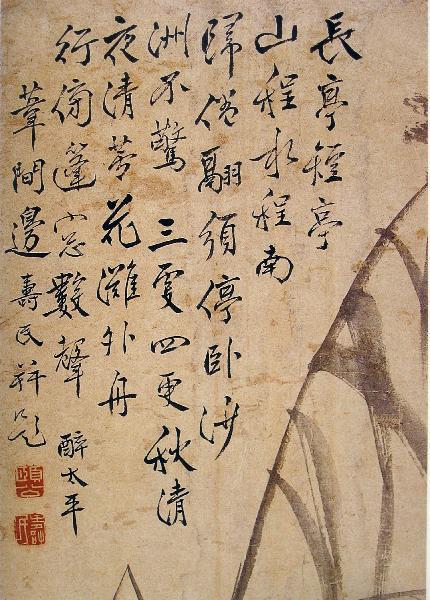 長亭短亭
山程水程南
歸倦翮須停卧沙
洲不驚 三更四更秋清
夜清蓼花灘外舟
行傍篷窓數聲 醉太平
葦間邊壽民并題
頤公